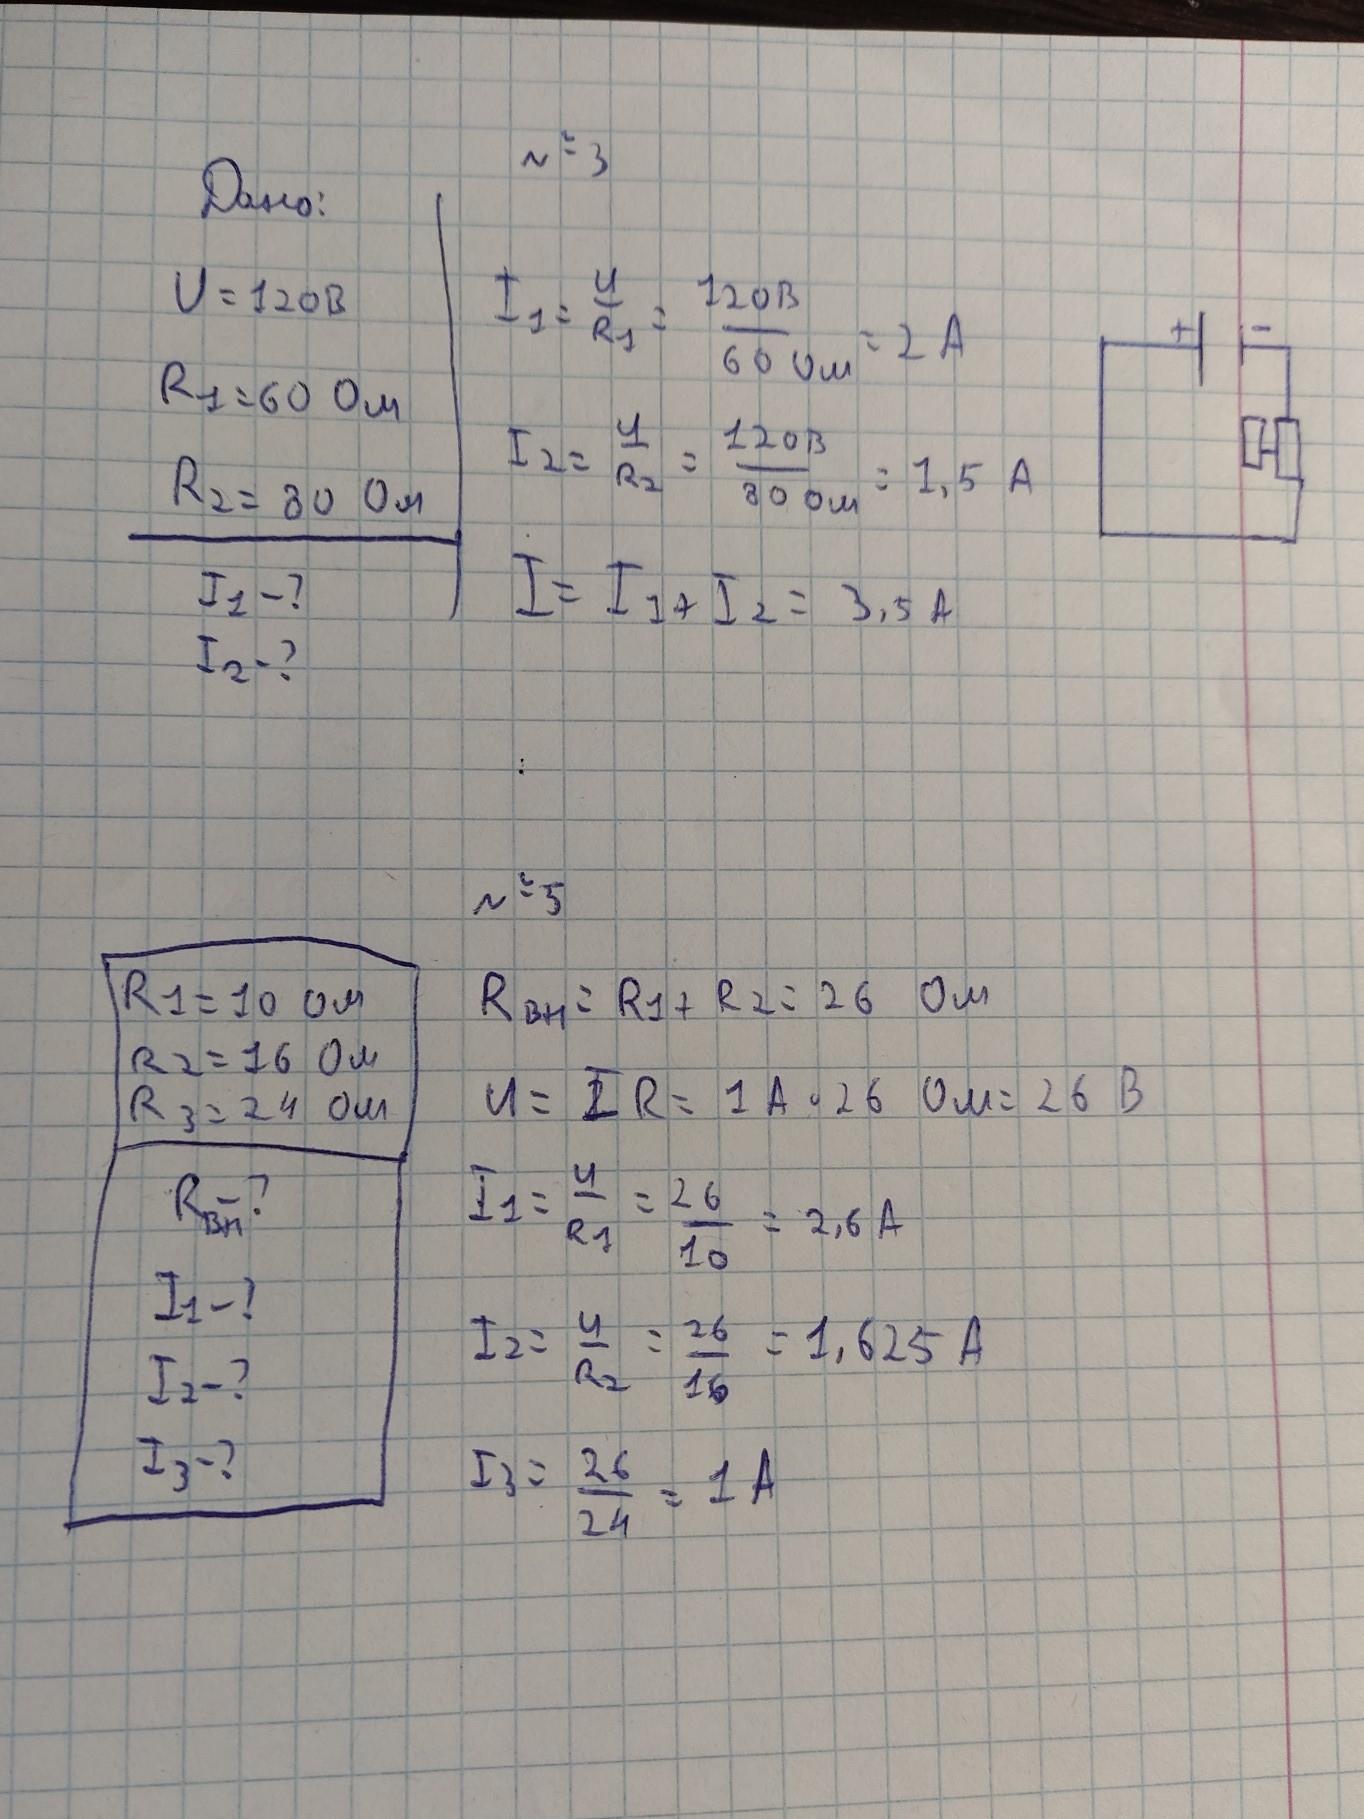 №3
Дано:
U = 120В
R1 = 60 Ом
R2 = 80 Ом
I1 - ?
I2 - ?
I1 = U/R1 = 120В/60 Ом = 2 А
I2 = U/R2 = 120В/80 Ом = 1,5 А
I = I1 + I2 = 3,5 А
+ -
№5
R1 = 10 Ом
R2 = 16 Ом
R3 = 24 Ом
Rвн - ?
I1 - ?
I2 - ?
I3 - ?
Rвн = R1 + R2 = 26 Ом
U = IR = 1 А · 26 Ом = 26 В
I1 = U/R1 = 26/10 = 2,6 А
I2 = U/R2 = 26/16 = 1,625 А
I3 = 26/24 = 1 А